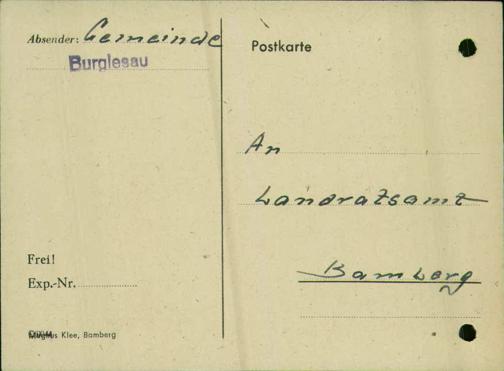 Absender: Gemeinde
Burglesau
Postkarte
An
Landratsamt
Bamberg
Frei!
Exp.-Nr.
Klee, Bamberg